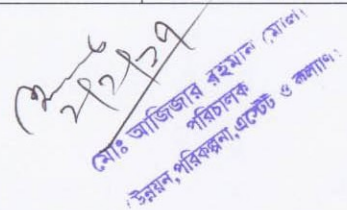 ২/২/২৭
মোঃ আজিজার রহমান মোল্লা
পরিচালক
উন্নয়ন, পরিকল্পনা, এস্টেট ও কল্যাণ